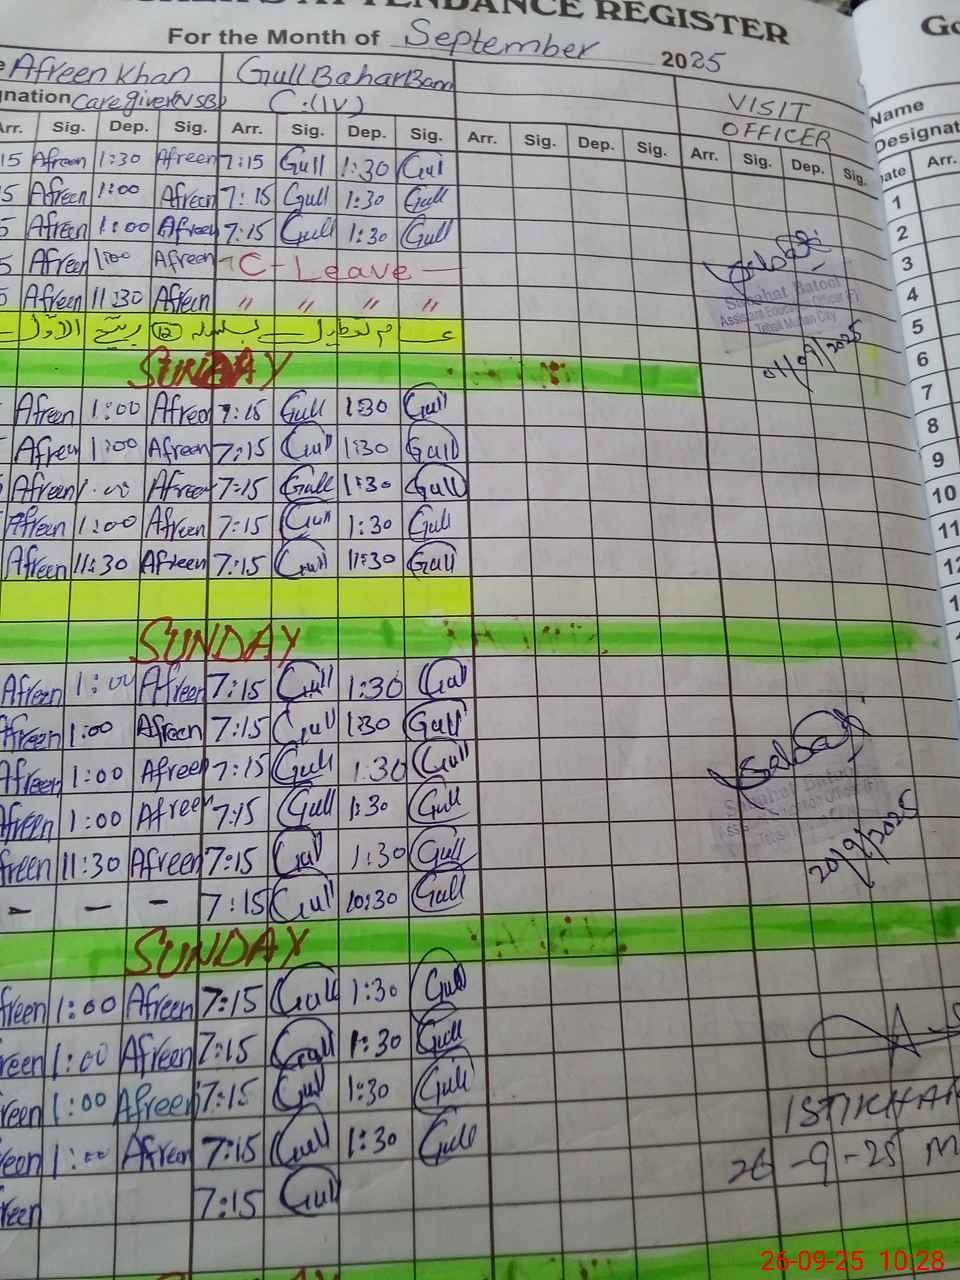 ATTENDANCE REGISTER
For the Month of September 2025
Afreen Khan Gull Bahar Bano
gnation Care giver (NSB) C.(IV) VISIT OFFICER
Arr. Sig. Dep. Sig. Arr. Sig. Dep. Sig. Arr. Sig. Dep. Sig. Arr. Sig. Dep. Sig.
15 Afreen 1:30 Afreen 7:15 Gull 1:30 Gull
5 Afreen 1:00 Afreen 7:15 Gull 1:30 Gull
5 Afreen 1:00 Afreen 7:15 Gull 1:30 Gull
5 Afreen 1:00 Afreen C - Leave -
5 Afreen 11:30 Afreen " " " "
عام تعطیل بسلسلہ 12 ربیع الاول
SUNDAY
Afreen 1:00 Afreen 7:15 Gull 1:30 Gull
Afreen 1:00 Afreen 7:15 Gull 1:30 Gull
Afreen 1:00 Afreen 7:15 Gull 1:30 Gull
Afreen 1:00 Afreen 7:15 Gull 1:30 Gull
Afreen 11:30 Afreen 7:15 Gull 11:30 Gull
SUNDAY
Afreen 1:00 Afreen 7:15 Gull 1:30 Gull
Afreen 1:00 Afreen 7:15 Gull 1:30 Gull
Afreen 1:00 Afreen 7:15 Gull 1:30 Gull
Afreen 1:00 Afreen 7:15 Gull 1:30 Gull
freen 11:30 Afreen 7:15 Gull 1:30 Gull
- - - 7:15 Gull 10:30 Gull
SUNDAY
freen 1:00 Afreen 7:15 Gull 1:30 Gull
reen 1:00 Afreen 7:15 Gull 1:30 Gull
reen 1:00 Afreen 7:15 Gull 1:30 Gull
een 1:00 Afreen 7:15 Gull 1:30 Gull
reen 7:15 Gull
Sabahat Batool
Assistant Education Officer (F)
Tehsil Multan City
01/09/2025
Sabahat Batool
20/9/2025
ISTIKHAR
26-9-25 M
Go
Name
Designat
ate Arr.
1
2
3
4
5
6
7
8
9
10
11
12
1
26-09-25 10:28